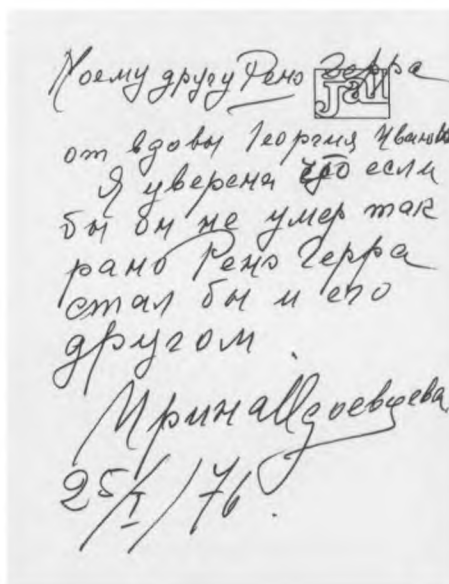 Моему другу Ренэ Герра
от вдовы Георгия Иванова
Я уверена что если
бы он не умер так
рано Ренэ Герра
стал бы и его
другом.
Ирина Одоевцева
25/I/76.